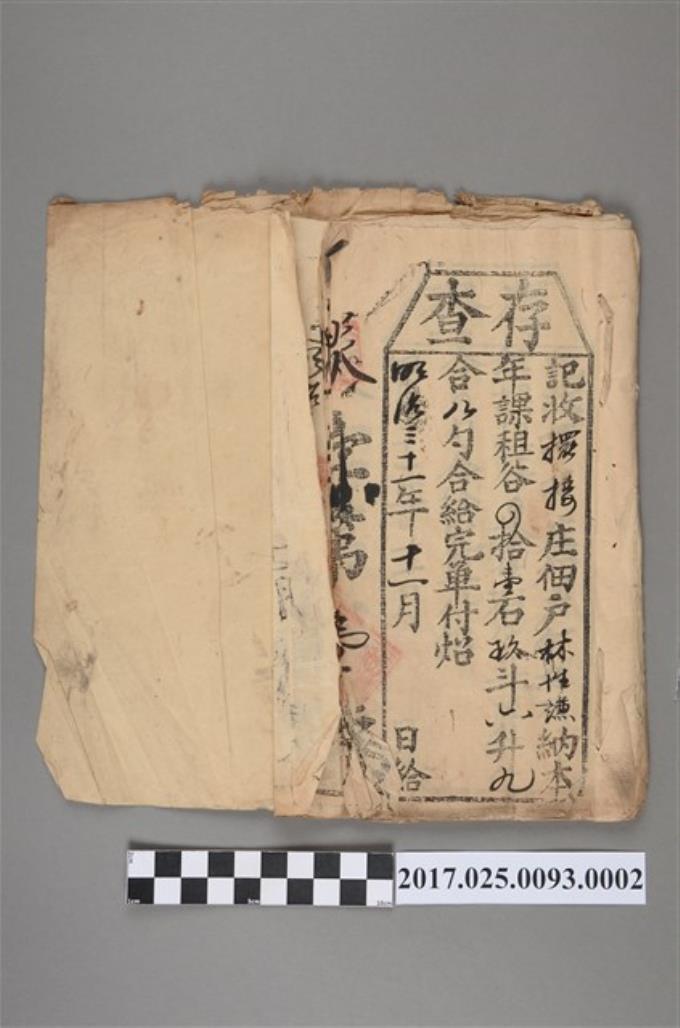 存查
記收擺接庄佃戶林性謙納本
年課租谷拾壹石玖斗六升九
合八勺合給完單付炤
明治三十一年十一月 日給
2017.025.0093.0002